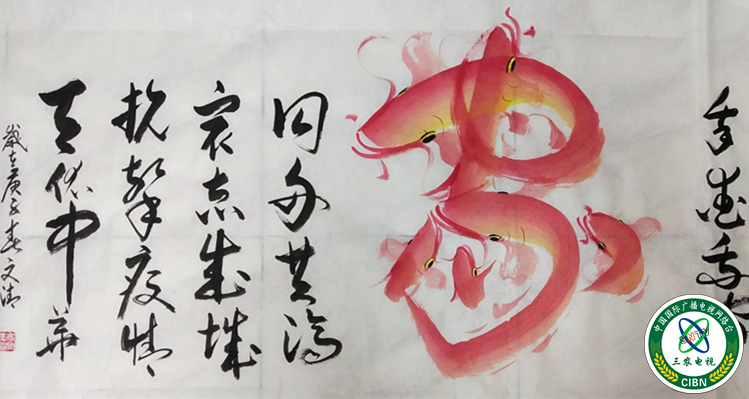 同舟共济
众志成城
抗击疫情
天佑中华
岁在庚子春文清
中国国际广播电视网络台
三农电视
CIBN